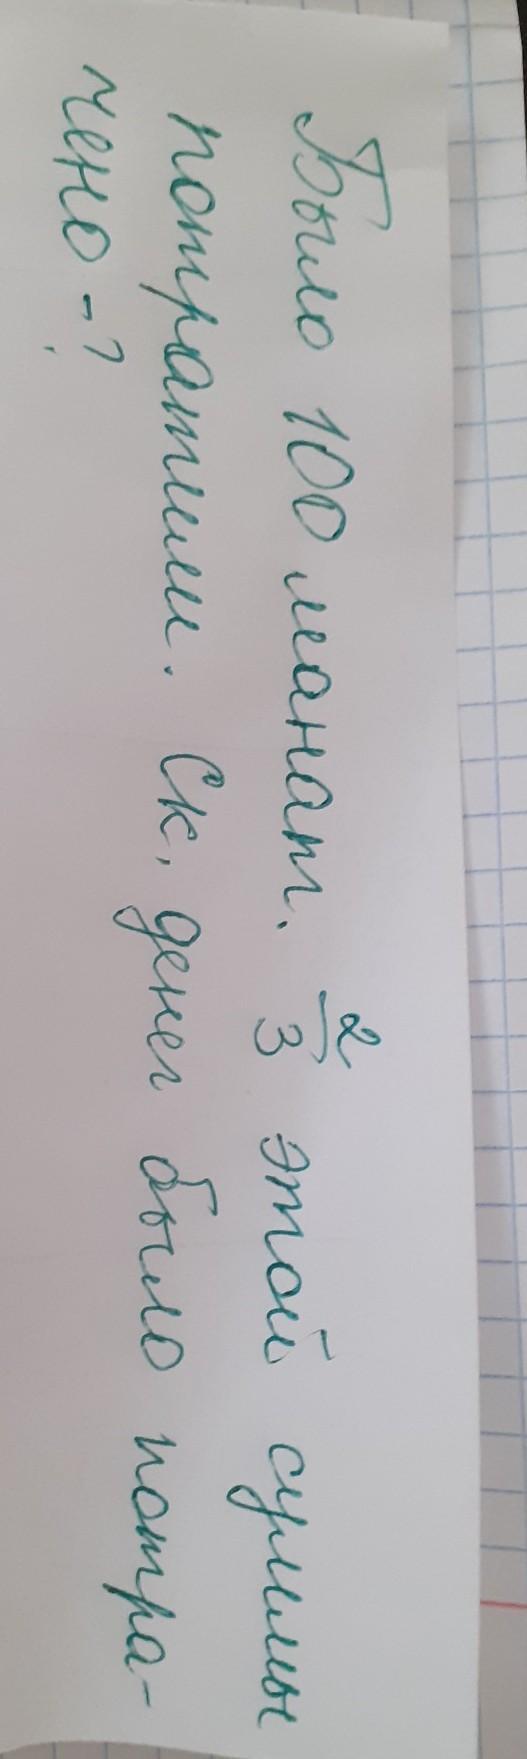 Было 100 манат. 2/3 этой суммы
потратили. Ск. денег было потра-
чено -?